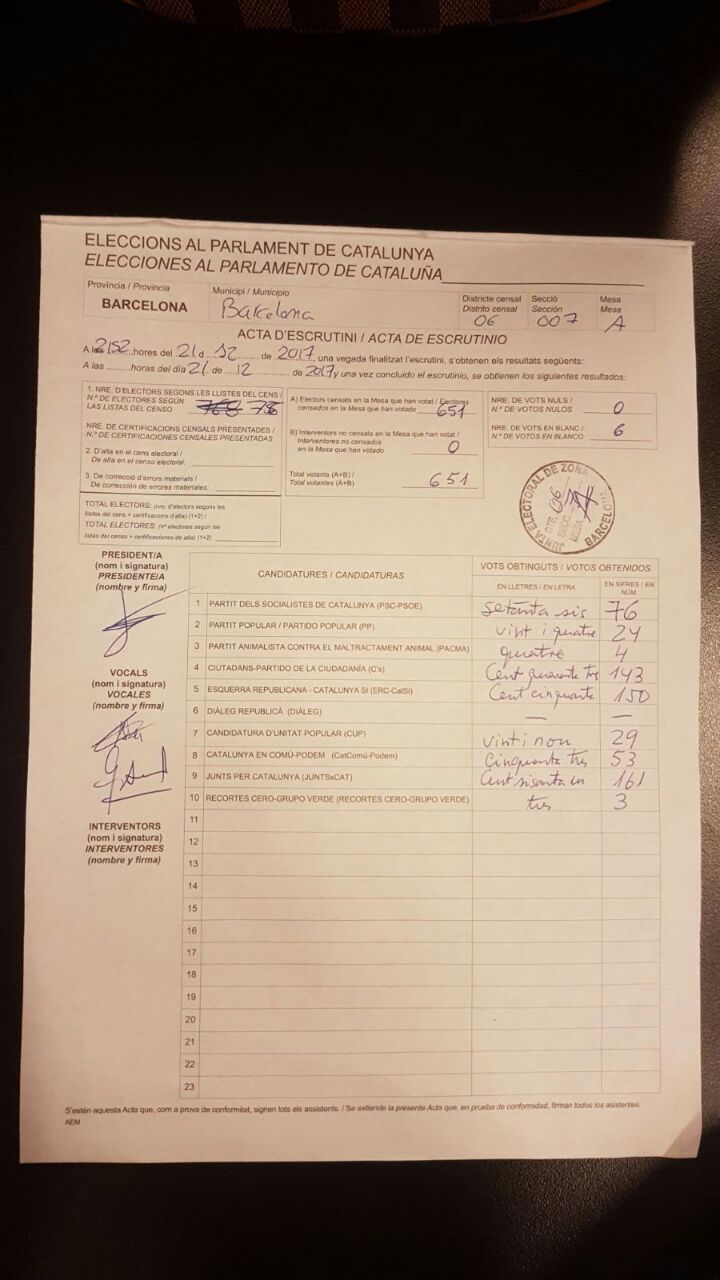 ELECCIONS AL PARLAMENT DE CATALUNYA
ELECCIONES AL PARLAMENTO DE CATALUÑA
Provincia / Provincia
BARCELONA
Municipi / Municipio
Barcelona
Districte censal
Distrito censal
06
Secció
Sección
007
Mesa
Mesa
A
ACTA D'ESCRUTINI / ACTA DE ESCRUTINIO
A les 2152 hores del 21 d 12 de 2017 una vegada finalitzat l'escrutini, s'obtenen els resultats següents:
A las ........horas del día 21 de 12 de 2017 y una vez concluido el escrutinio, se obtienen los siguientes resultados:
1. NRE. D'ELECTORS SEGONS LES LLISTES DEL CENS /
N.º DE ELECTORES SEGÚN
LAS LISTAS DEL CENSO
NRE. DE CERTIFICACIONS CENSALS PRESENTADES /
N.º DE CERTIFICACIONES CENSALES PRESENTADAS
2. D'alta en el cens electoral /
De alta en el censo electoral:
3. De correcció d'errors materials /
De corrección de errores materiales:
TOTAL ELECTORS: (nre. d'electors segons les
llistes del cens + certificacions d'alta) (1+2) /
TOTAL ELECTORES: (nº electores según las
listas del censo + certificaciones de alta) (1+2)
A) Electors censats en la Mesa que han votat / Electores
censados en la Mesa que han votado 651
B) Interventors no censats en la Mesa que han votat /
Interventores no censados
en la Mesa que han votado 0
Total votants (A+B) /
Total votantes (A+B) 651
NRE. DE VOTS NULS /
N.º DE VOTOS NULOS 0
NRE. DE VOTS EN BLANC /
N.º DE VOTOS EN BLANCO 6
JUNTA ELECTORAL DE ZONA
BARCELONA
DTE. 06
SECC.
MESA
PRESIDENT/A
(nom i signatura)
PRESIDENTE/A
(nombre y firma)
VOCALS
(nom i signatura)
VOCALES
(nombre y firma)
INTERVENTORS
(nom i signatura)
INTERVENTORES
(nombre y firma)
CANDIDATURES / CANDIDATURAS
VOTS OBTINGUTS / VOTOS OBTENIDOS
EN LLETRES / EN LETRA
EN XIFRES / EN NÚM.
1 PARTIT DELS SOCIALISTES DE CATALUNYA (PSC-PSOE) setanta sis 76
2 PARTIT POPULAR / PARTIDO POPULAR (PP) vint i quatre 24
3 PARTIT ANIMALISTA CONTRA EL MALTRACTAMENT ANIMAL (PACMA) quatre 4
4 CIUTADANS-PARTIDO DE LA CIUDADANÍA (C's) Cent quaranta tres 143
5 ESQUERRA REPUBLICANA - CATALUNYA SÍ (ERC-CatSí) Cent cinquanta 150
6 DIÀLEG REPUBLICÀ (DIÀLEG) — —
7 CANDIDATURA D'UNITAT POPULAR (CUP) vint i nou 29
8 CATALUNYA EN COMÚ-PODEM (CatComú-Podem) Cinquanta tres 53
9 JUNTS PER CATALUNYA (JUNTSxCAT) Cent sisanta un 161
10 RECORTES CERO-GRUPO VERDE (RECORTES CERO-GRUPO VERDE) tres 3
11
12
13
14
15
16
17
18
19
20
21
22
23
S'estén aquesta Acta que, com a prova de conformitat, signen tots els assistents. / Se extiende la presente Acta que, en prueba de conformidad, firman todos los asistentes.
AEM